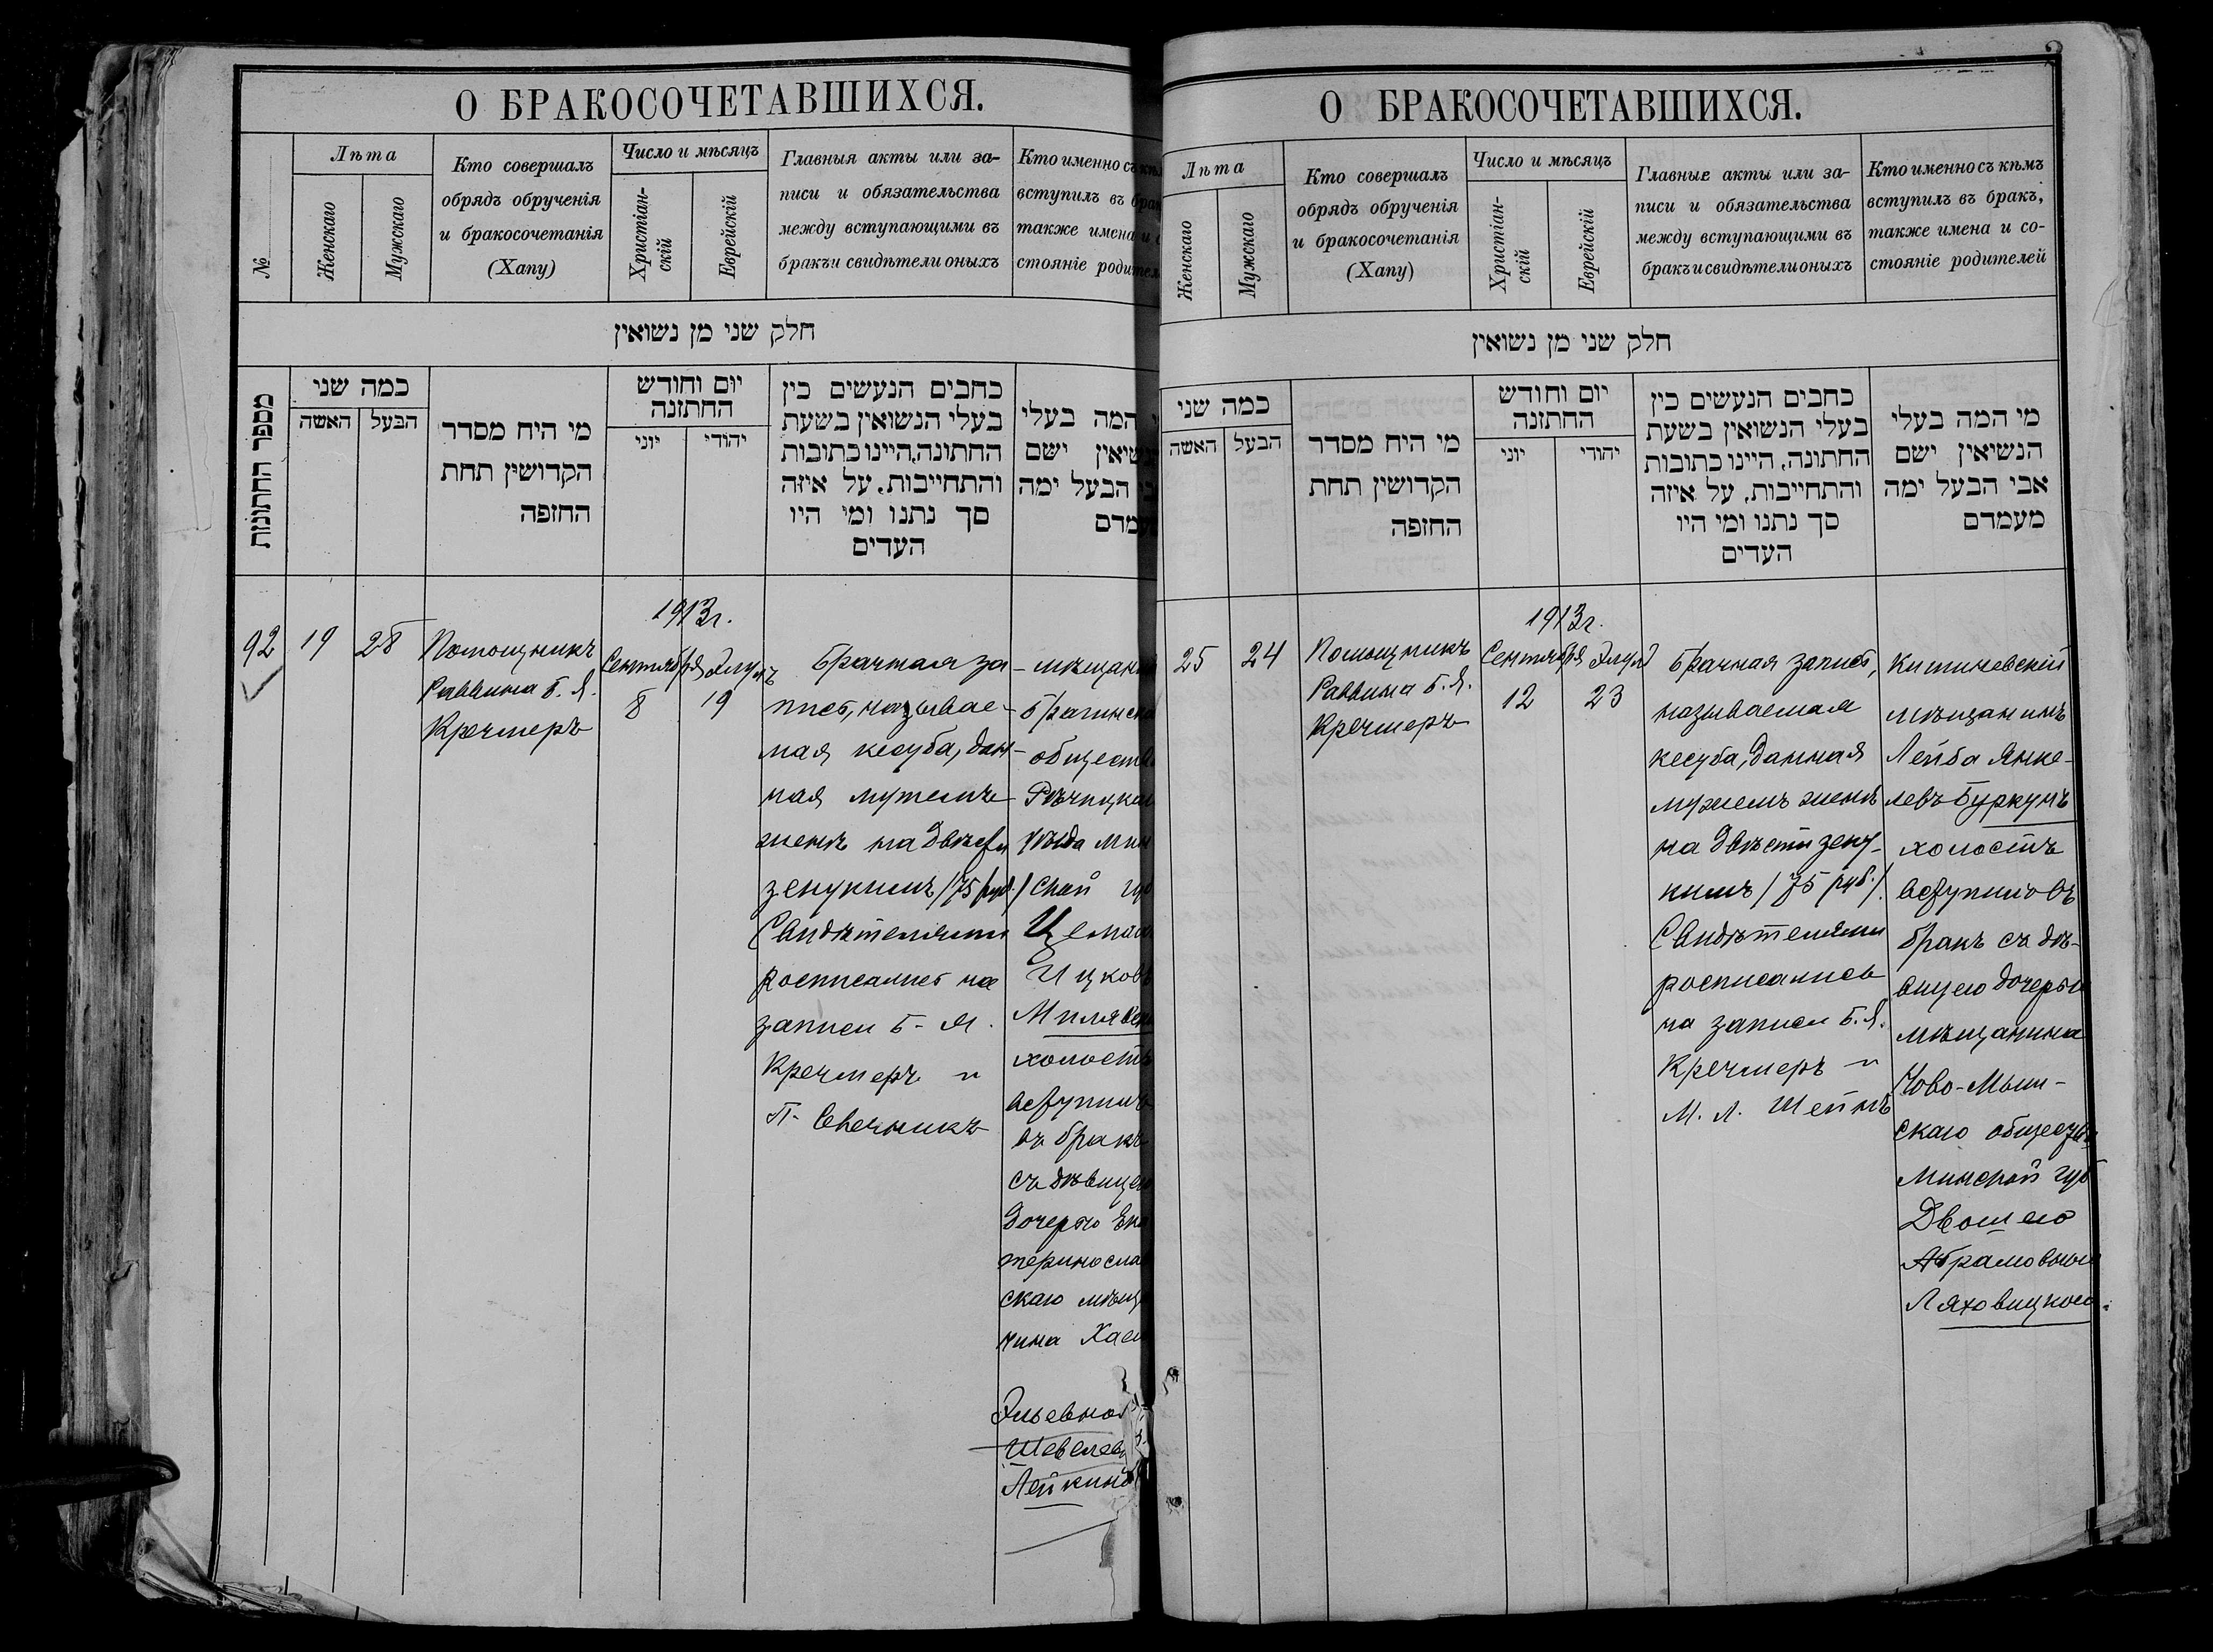 О БРАКОСОЧЕТАВШИХСЯ.
№
Лѣта
Женскаго
Мужскаго
Кто совершалъ
обрядъ обрученія
и бракосочетанія
(Хапу)
Число и мѣсяцъ
Христіан-
скій
Еврейскій
Главныя акты или за-
писи и обязательства
между вступающими въ
бракъ и свидѣтели оныхъ
Кто именно съ
вступилъ въ
также имена и
стояніе
חלק שני מן נשואין
מספר החתונות
כמה שני
האשה
הבעל
מי היח מסדר
הקדושין תחת
החופה
יום וחודש
החתונה
יוני
יהודי
כתבים הנעשים בין
בעלי הנשואין בשעת
החתונה, היינו כתובות
והתחייבות, על איזה
סך נתנו ומי היו
העדים
המה בעלי
ישם
הבעל ימה
92
19
28
Помощникъ
Раввина Б. Я.
Кречмеръ
1913г.
Сентября
8
Элулъ
19
Брачная за-
пись, называе-
мая кесуба, дан-
ная мужемъ
женѣ на двѣсти
зекукимъ /75 руб./
Свидѣтелями
росписались на
записи Б. Я.
Кречмеръ и
П. Свечникъ
Рѣчицка
уѣзда Мин
ской губ
Ицков
холостъ
вступилъ
въ бракъ
съ дѣвицею
дочерью Ека
теринослав
скаго мѣщ
нина
Эльевно
Шевелев
Лейкино
О БРАКОСОЧЕТАВШИХСЯ.
Лѣта
Женскаго
Мужскаго
Кто совершалъ
обрядъ обрученія
и бракосочетанія
(Хапу)
Число и мѣсяцъ
Христіан-
скій
Еврейскій
Главные акты или за-
писи и обязательства
между вступающими въ
бракъ и свидѣтели оныхъ
Кто именно съ кѣмъ
вступилъ въ бракъ,
также имена и со-
стояніе родителей
חלק שני מן נשואין
כמה שני
האשה
הבעל
מי היח מסדר
הקדושין תחת
החופה
יום וחודש
החתונה
יוני
יהודי
כתבים הנעשים בין
בעלי הנשואין בשעת
החתונה, היינו כתובות
והתחייבות, על איזה
סך נתנו ומי היו
העדים
מי המה בעלי
הנשיאין ישם
אבי הבעל ימה
מעמדם
25
24
Помощникъ
Раввина Б. Я.
Кречмеръ
1913г.
Сентября
12
Элул
23
Брачная запись,
называемая
кесуба, данная
мужемъ женѣ
на двѣсти зеку-
кимъ /75 руб./.
Свидѣтелями
росписались
на записи Б. Я.
Кречмеръ и
М. Л. Шейнъ
Кишиневскій
мѣщанинъ
Лейба Янке-
левъ Буркунъ
холостъ
вступилъ въ
бракъ съ дѣ-
вицею дочерью
мѣщанина
Ново-Мыш-
скаго общества
Минской губ
Двошею
Абрамовною
Ляховицкою.